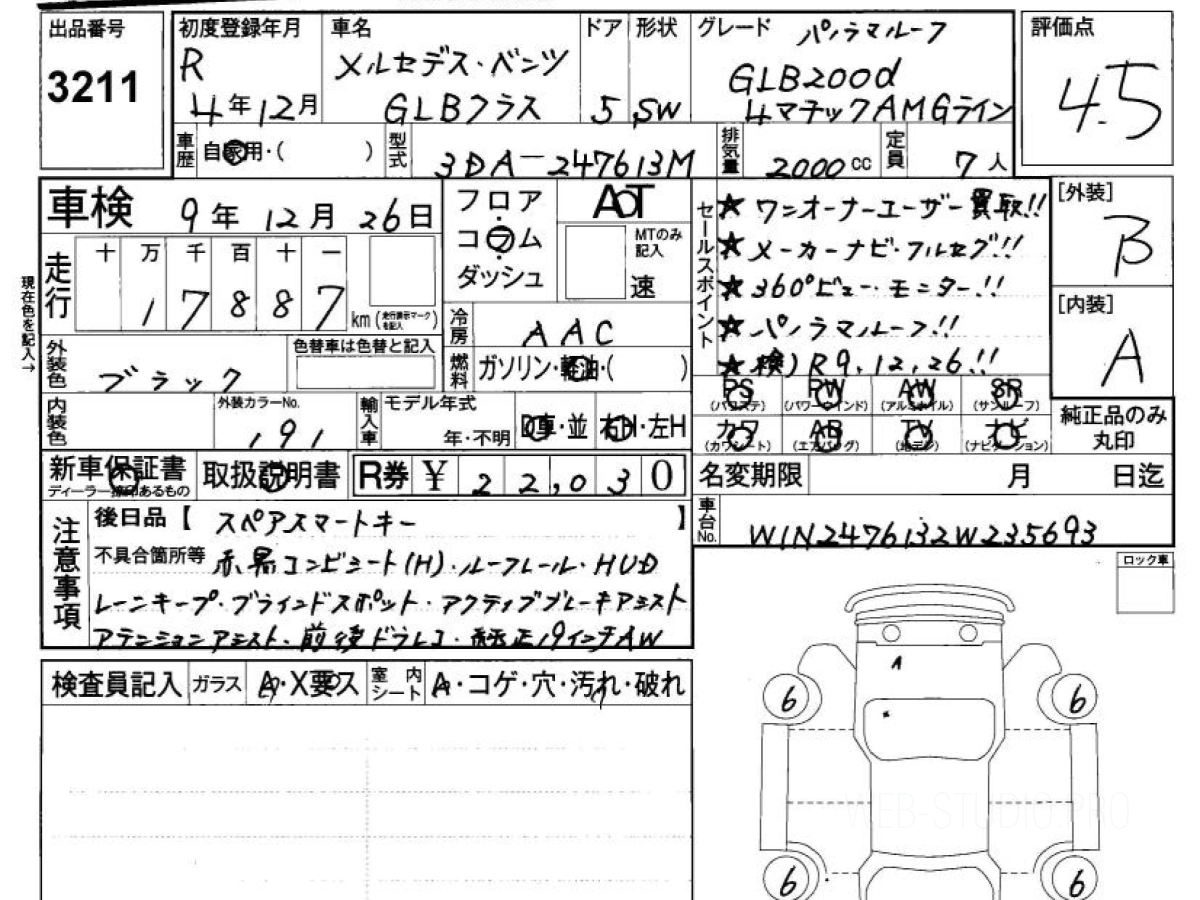 出品番号
3211
初度登録年月
R
4年12月
車名
メルセデス・ベンツ
GLBクラス
ドア
5
形状
SW
グレード パノラマルーフ
GLB200d
4マチックAMGライン
評価点
4.5
車歴 自家用・( )
型式 3DA-247613M
排気量 2000cc
定員 7人
車検 9年12月26日
現在色を記入→
走行
十 万 千 百 十 一
1 7 8 8 7 km (走行表示マークを記入)
外装色 ブラック
色替車は色替と記入
内装色
外装カラーNo.
191
フロア
コラム
ダッシュ
AT
MTのみ記入
速
冷房 AAC
燃料 ガソリン・軽油・( )
輸入車
モデル年式
年・不明
D車・並
右H・左H
セールスポイント
★ワンオーナーユーザー買取!!
★メーカーナビ・フルセグ!!
★360°ビュー・モニター!!
★パノラマルーフ!!
★検)R9.12.26!!
[外装]
B
[内装]
A
PS (パワステ)
PW (パワーウインド)
AW (アルミホイル)
SR (サンルーフ)
カワ (カワシート)
AB (エアバッグ)
TV (地デジ)
ナビ (ナビゲーション)
純正品のみ
丸印
新車保証書
ディーラー捺印あるもの
取扱説明書
R券 ¥ 22,030
名変期限 月 日迄
車台No. W1N2476132W235693
注意事項
後日品【 スペアスマートキー 】
不具合箇所等 赤黒コンビシート(H)・ルーフレール・HUD
レーンキープ・ブラインドスポット・アクティブブレーキアシスト
アテンションアシスト・前後ドラレコ・純正19インチAW
ロック車
検査員記入
ガラス
A・X要ス
室内シート
A・コゲ・穴・汚れ・破れ
A
6
6
6
6
WEB-STUDIO.PRO